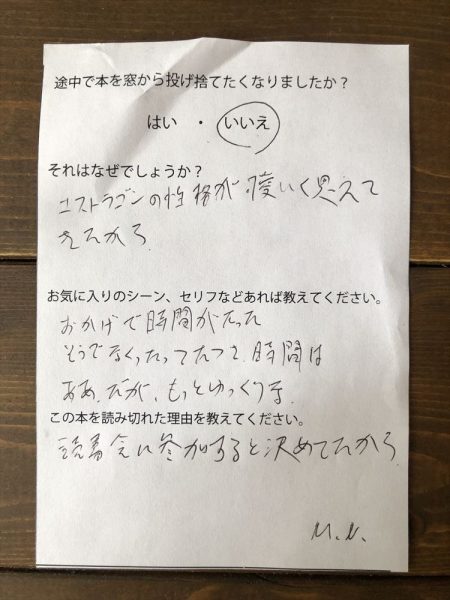 途中で本を窓から投げ捨てたくなりましたか？
はい ・ いいえ
それはなぜでしょうか？
エストラゴンの性格が、愛しく思えて
きたから
お気に入りのシーン、セリフなどあれば教えてください。
おかげで時間がたった
そうでなくったってたつさ、時間は
ああ、だが、もっとゆっくりな
この本を読み切れた理由を教えてください。
読書会に参加すると決めてたから
M.N.